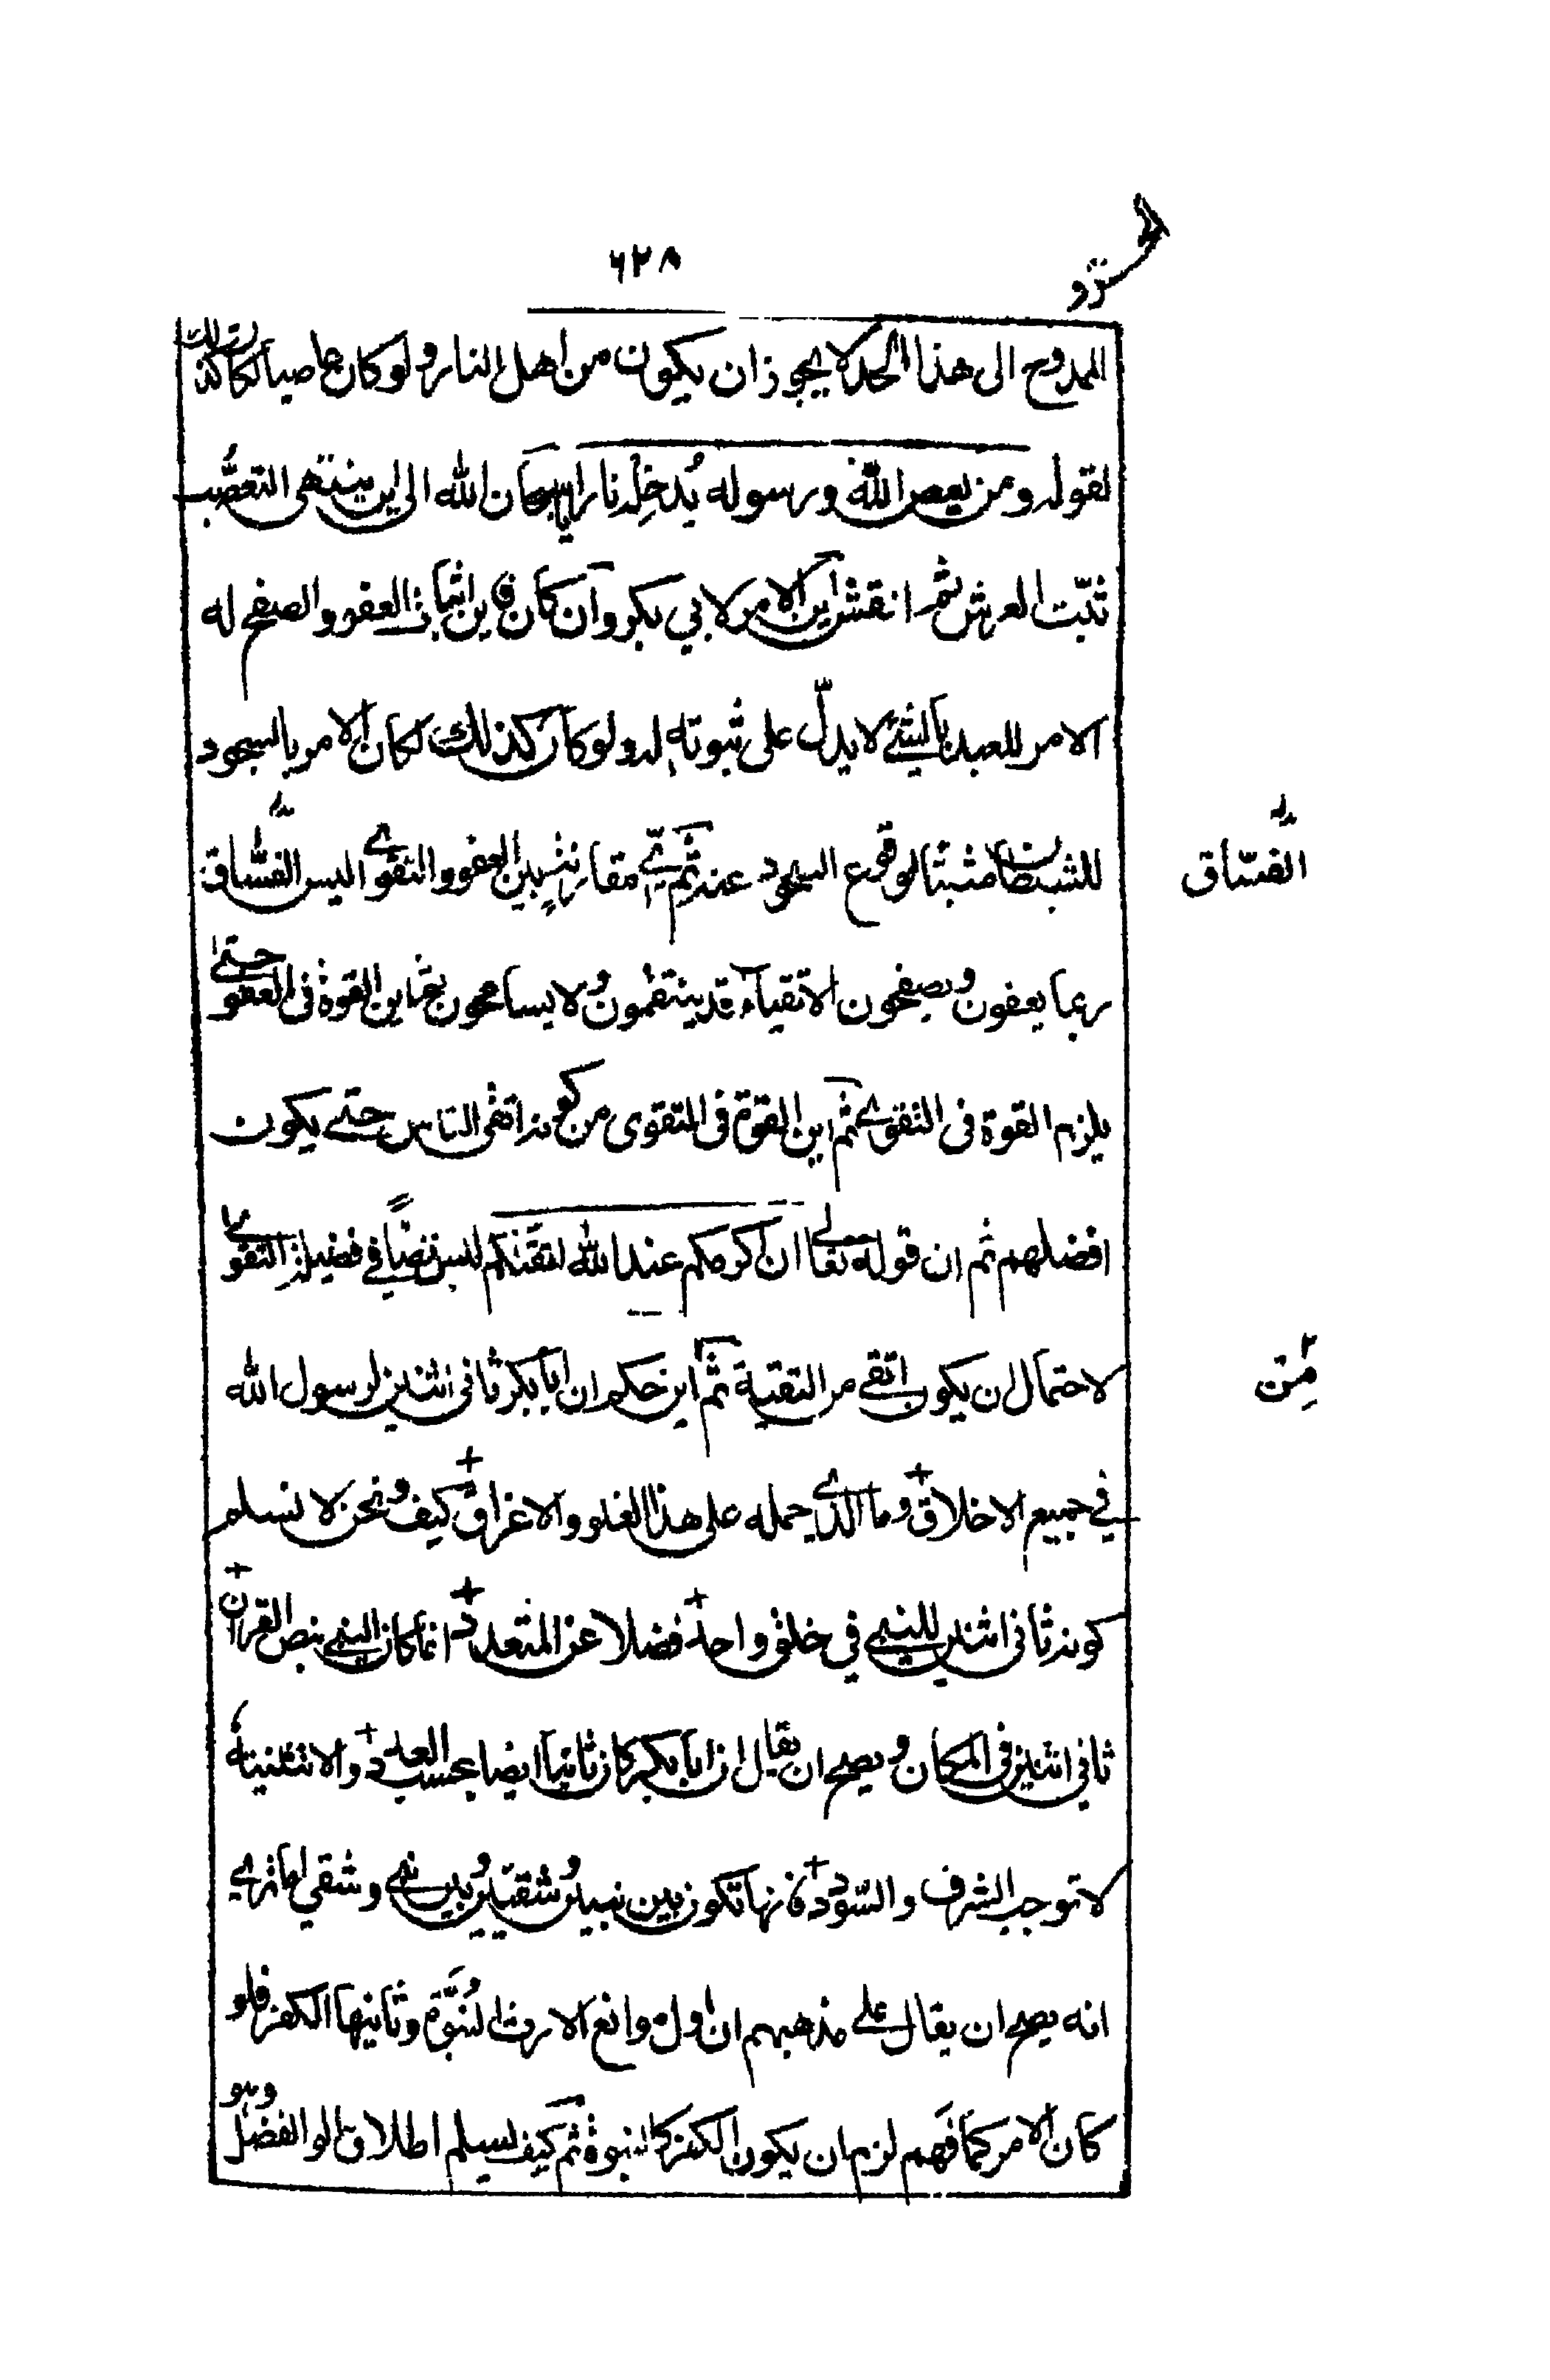 ٦٢٨
الممدوح الى هذا الحد لا يجوز ان يكون من اهل النار ولو كان عاصيا لكان كذلك
لقوله ومن يعص الله ورسوله يُدخله نارا يا سبحان الله الى اين ينتهى التعصّب
ثبّت العرش ثم انقش اين الامر لابي بكر وان كان فاين اثبات العفو والصفح له
الامر للعبد بالشئ لا يدلّ على ثبوته له ولو كان كذلك لكان الامر بالسجود
للشيطان مثبتا لوقوع السجود عنه ثم اىّ مقارنة بين العفو والتقوى اليس الفسّاق
الفسّاق
ربما يعفون ويصفحون الاتقياء قد ينتقمون ولا يسامحون فمن اين القوة فى العفو حتى
يلزم القوة فى التقوى ثم اين القوة فى التقوى من كونه اتقى الناس حتى يكون
افضلهم ثم ان قوله تعالى ان اكرمكم عند الله اتقىكم ليس نصّاً في فضيلة التقوى
لاحتمال ان يكون اتقى من التقية ثم اين حكم ان ابا بكر ثانى اثنين لرسول الله
مِن
في جميع الاخلاق وما الذى حمله على هذا الغلو والاغراق كيف ونحن لا نسلم
كونه ثانى اثنين للنبى في خلق واحد فضلا عن المتعدد انما كان النبى بنص القران
ثانى اثنين فى المكان ويصح ان يقال ان ابا بكر كان ثانيا ايضا بحسب العدد والاثنينية
لا توجب الشرف والسّودد فانها تكون بين نبيين وشقيّين وبين نبى وشقي اما ترى
انه يصح ان يقال على مذهبهم ان اول موانع الارث النبّوة وثانيها الكفر فلو
كان الامر كما فهم لزم ان يكون الكفر كالنبوة ثم كيف نسلم اطلاق اولو الفضل وهو